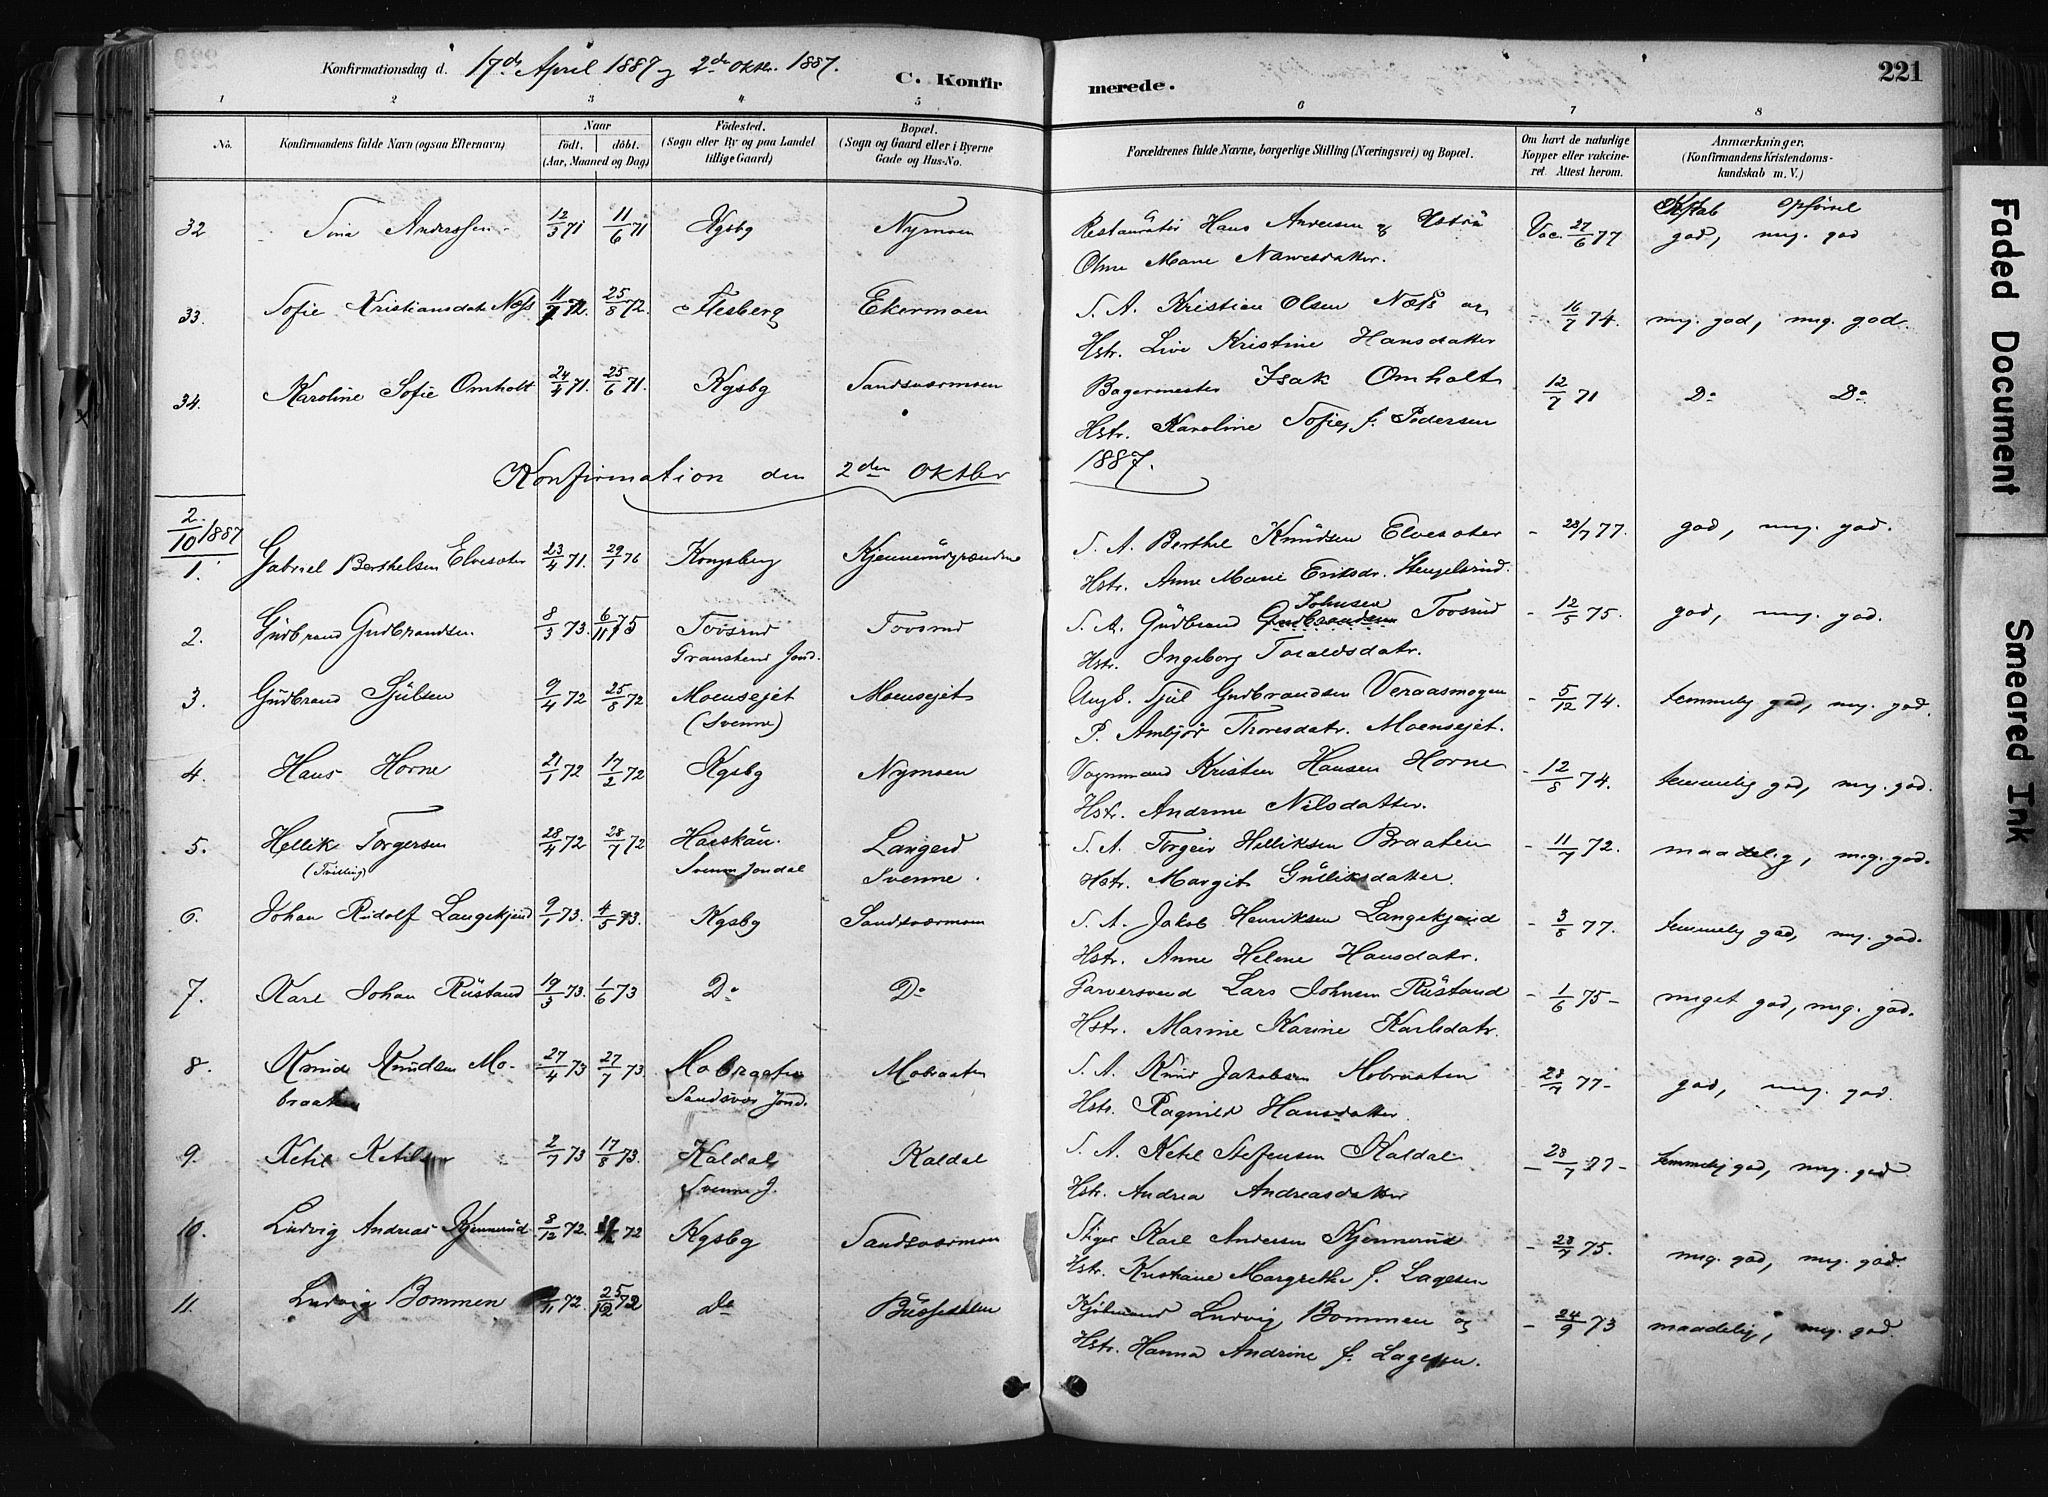 Konfirmationsdag d. 17de April 1887 og 2de Oktbr. 1887.
C. Konfirmerede.
221
1 2 3 4 5 6 7 8
No.
Konfirmandens fulde Navn (ogsaa Efternavn)
Naar
født. døbt.
(Aar, Maaned og Dag)
Fødested.
(Sogn eller By og paa Landet
tillige Gaard)
Bopæl.
(Sogn og Gaard eller i Byerne
Gade og Hus-No.
Forældrenes fulde Navne, borgerlige Stilling (Næringsvei) og Bopæl.
Om havt de naturlige
Kopper eller vakcine-
ret Attest herom.
Anmærkninger.
(Konfirmandens Kristendoms-
kundskab m. V.)
opførsel
32 Tina Anderssen 12/3 71 11/6 71 Kgsbg Nymoen Restauratør Hans Andersen og Hstru Vac. 27/6 77 god, mg. god
Oline Marie
33. Sofie Kristiansdatr Næss 11/7 72. 25/8 72. Flesberg Ekermoen S. A. Kristian Olsen Næss og - 16/7 74. mg. god, mg. god.
Hstr. Live Kristine Hansdatter
34. Karoline Sofie Omholt 24/4 71. 25/6 71. Kgsbg Sandsværmoen Bagermester Isak Omholt 12/7 71 Do Do
Hstr. Karoline Sofie, f. Pedersen
Konfirmation den 2den Oktbr 1887.
2/10 1887
1. Gabriel Berthelsen Elvesæter 23/4 71. 29/1 76 Kongsberg S. A. Berthel Knudsen Elvesæter - 28/7 77. god, mg. god.
Hstr. Anne Marie Eriksdr. Stengelsrud.
2. Gudbrand Gudbrandsen 8/3 73. 6/11 75 Toosrud Toosrud S. A. Gudbrand Gudbrandsen Johnsen Toosrud - 12/5 75. god, mg. god.
Jond. Hstr. Ingeborg Toraldsdatr.
3. Gudbrand Sjulsen 9/4 72 25/8 72 Moensejet Moensejet Ungk. Sjul Gudbrandsen Veraasmogen - 5/12 74. temmelig god, mg. god.
(Svenne) P. Ambjør Thoresdatr. Moensejet.
4. Hans Horne 21/1 72 17/2 72 Kgsbg Nymoen Vognmand Kristen Hansen Horne - 12/8 74. temmelig god, mg. god.
Hstr. Andrine Nilsdatter.
5. Hellik Torgersen 28/4 72 28/7 72 Langerd S. A. Torgeir Helliksen Braaten - 11/7 72. maadelig, mg. god.
(Tvilling) Svenne Jondal Svenne. Hstr. Margit Gulliksdatter.
6. Johan Rudolf Langekjend 9/1 73. 4/5 73. Kgsbg Sandsværmoen S. A. Jakob Henriksen Langekjend - 3/8 77. temmelig god, mg. god.
Hstr. Anne Helene Hansdatr.
7. Karl Johan Rustand 19/3 73. 1/6 73 Do Do Garversvend Lars Johnsen Rustand - 1/6 75- meget god, mg. god.
Hstr. Marine Karine Karlsdatr.
8. Knud Knudsen Mo- 27/4 73 27/7 73 Mobraaten Mobraaten S. A. Knud Jakobsen Mobraaten - 28/7 77- god, mg. god.
braaten Sandsvær Jond. Hstr. Ragnild Hansdatter.
9. Ketil Ketilsen 2/7 73 17/8 73. Kaldal Kaldal S. A. Ketil Stefensen Kaldal - 28/7 77- temmelig god, mg. god
Svenne J. Hstr. Andrea Andreasdatter
10. Ludvig Andreas Kjennerud 8/12 72. 72 Kgsbg Sandsværmoen Stiger Karl Andersen Kjennerud - 28/7 75. mg. god, mg. god.
Hstr. Kristiane Margrethe f. Lagesen
11. Ludvig Bommen /11 72. 25/12 72 do Kjøbmand Ludvig Bommen og - 24/9 73 maadelig, mg. god.
Hstr. Hanna Andrine f. Lagesen.
Faded Document
Smeared Ink